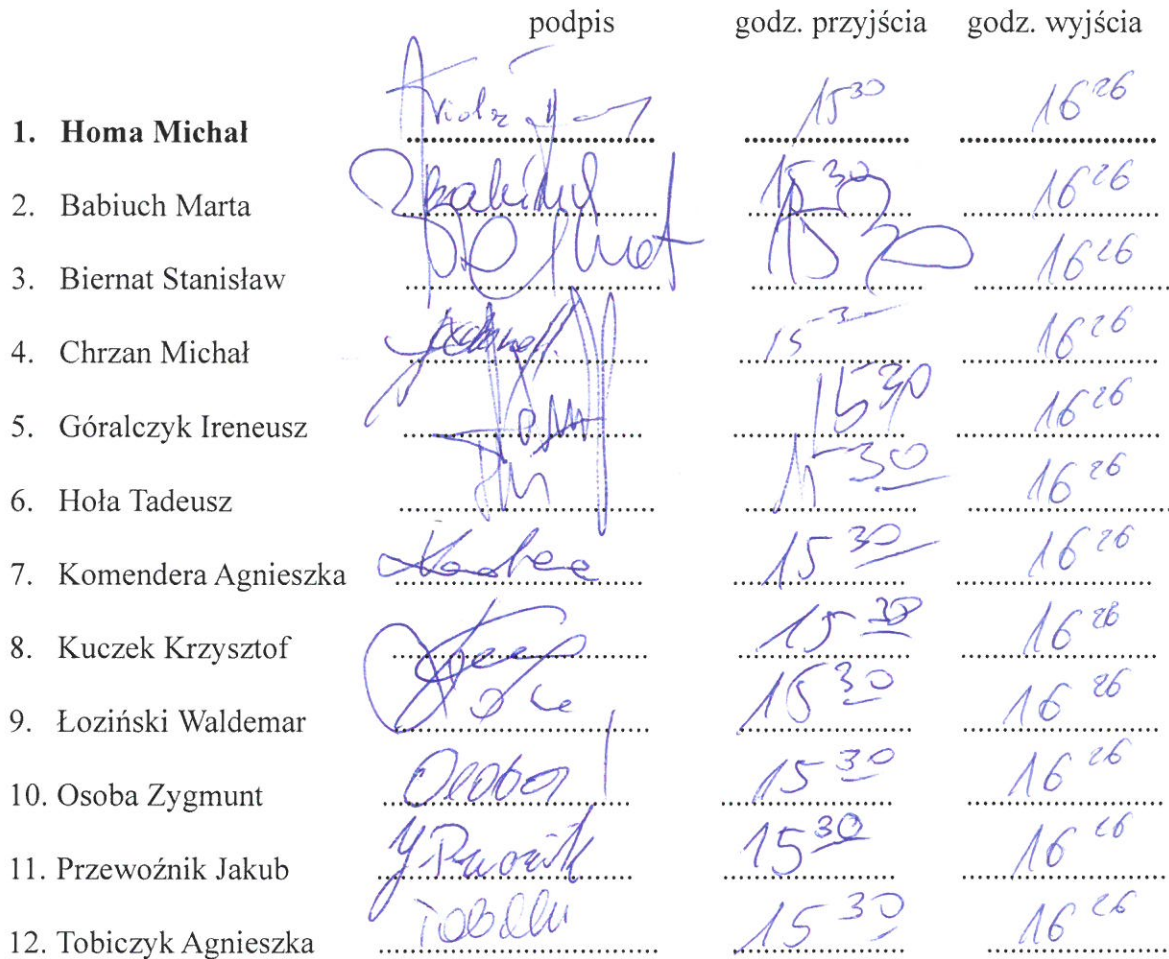 podpis godz. przyjścia godz. wyjścia
1. Homa Michał 15 30 16 26
2. Babiuch Marta 15 30 16 26
3. Biernat Stanisław 15 30 16 26
4. Chrzan Michał 15 3 16 26
5. Góralczyk Ireneusz 15 30 16 26
6. Hoła Tadeusz 15 30 16 26
7. Komendera Agnieszka 15 30 16 26
8. Kuczek Krzysztof 15 30 16 26
9. Łoziński Waldemar 15 30 16 26
10. Osoba Zygmunt 15 30 16 26
11. Przewoźnik Jakub 15 30 16 26
12. Tobiczyk Agnieszka 15 30 16 26